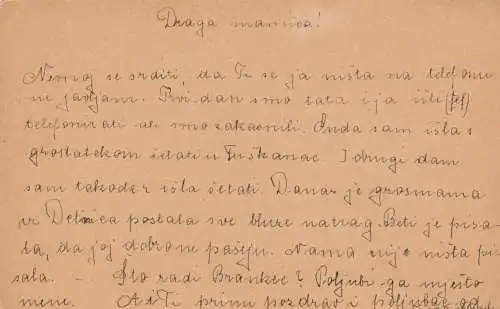 Draga mamica!
Nemoj se srditi, da Ti se ja ništa na telefonu
ne javljam. Prvi dan smo tata i ja išli (tel)
telefonirati ali smo zakasnili. Onda sam išla s
grostatekom šetati u Tuškanac. I drugi dan
sam također išla šetati. Danas je grosmama
iz Delnica postala sve bluze natrag. Beti je pisa-
la, da joj dobro ne pašeju. Nama nije ništa pi
sala. - Što radi Brankec? Poljubi ga mjesto
mene. A i Ti primi pozdrav i poljubac od